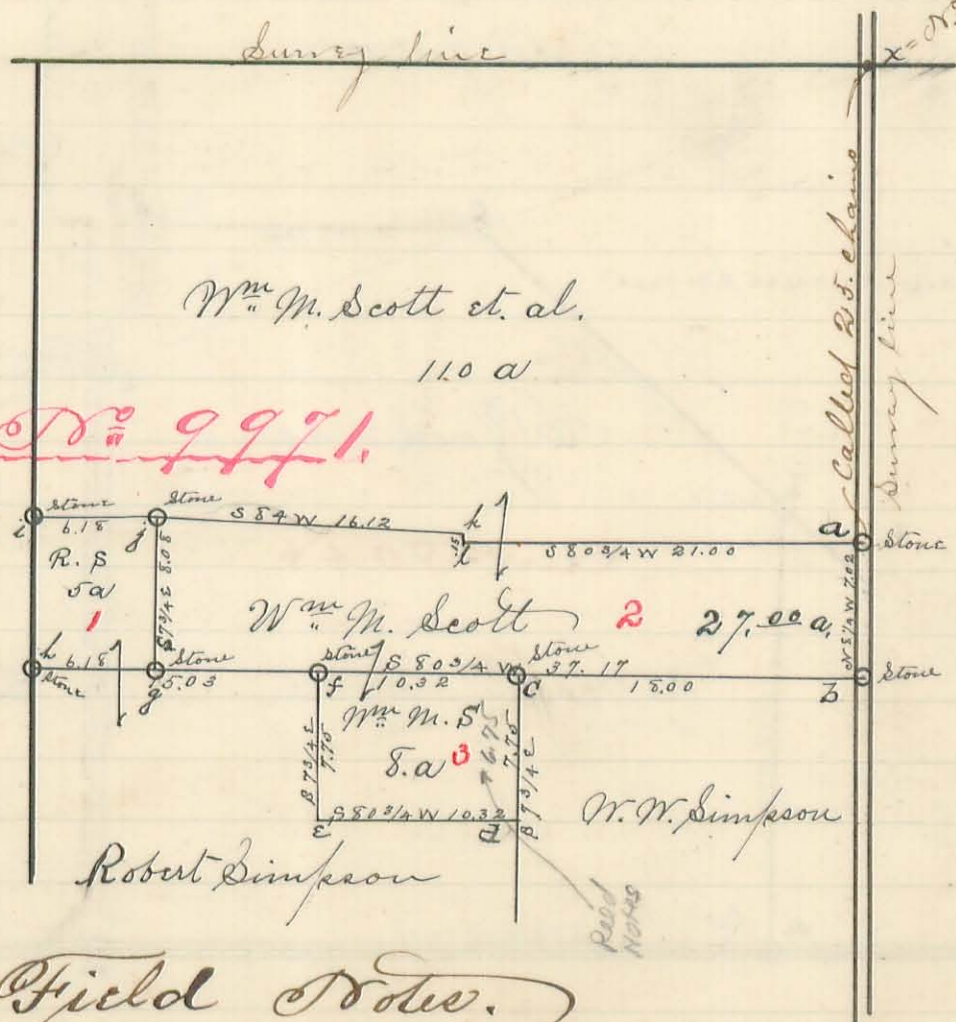 Survey line
x = No
Called 25. chains
Survey line
Wm M. Scott et. al.
110 a
No 9971.
Stone
Stone
i
6.18
j
S 84 W 16.12
k
.15
l
S 80 3/4 W 21.00
a
Stone
R. S
5a
1
S 7 3/4 E 8.08
Wm M. Scott
2
27.00 a.
N 8 1/4 W 7.02
h
6.18
Stone
Stone
g
5.03
Stone
f
S 80 3/4 W 37.17
10.32
Stone
c
18.00
b
Stone
Wm M. S
8.a
3
7 3/4 E
7.75
6.75
7.75
7 3/4 E
S 80 3/4 W 10.32
E
d
W. W. Simpson
Robert Simpson
Notes
Field Notes.